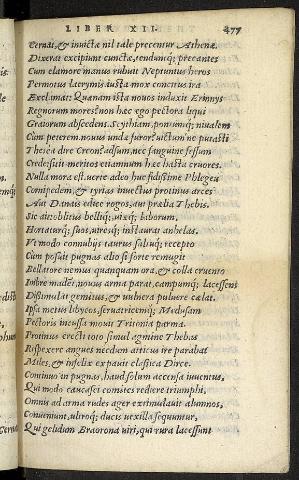 LIBER XII. 477
Cernat, & invictæ nil tale precentur Athenæ.
Dixerat excipiunt cunctæ, tenduntq; precantes
Cum clamore manus rubuit Neptunius heros
Permotus lacrymis, iusta mox concitus ira
Exclamat: Quænam ista nouos induxit Erinnys
Regnorum mores? non hæc ego pectora liqui
Graiorum abscedens, Scythiam, pontumq; niualem
Cum peterem. nouus unde furor? uictum'ne putasti
Thesea dire Creon? adsum, nec sanguine fessum
Crede: sitit meritos etiamnum hæc hasta cruores.
Nulla mora est. uerte adeo huc fidissime Phlegeu
Cornipedem, & tyrias inuectus protinus arces
Aut Danais edice rogos, aut prælia Thebis.
Sic ait: oblitus belliq;, uiæq; laborum.
Hortaturq; suos, uiresq; instaurat anhelas.
Vt modo connubijs taurus saltuq; recepto
Cum posuit pugnas alio si forte remugit
Bellatore nemus quanquam ora, & colla cruento
Imbre madet, nouus arma parat, campumq; lacessens
Dissimulat gemitus, & uulnera puluere cælat.
Ipsa metus libycos, seruatricemq; Medusam
Pectoris incussa mouit Tritonia parma.
Protinus erecti toto simul agmine Thebas
Respexere angues necdum atticus ire parabat
Miles, & infelix expauit classica Dirce.
Continuo in pugnas, haud solum accensa iuuentus,
Qui modo caucasei comites rediere triumphi,
Omnis ad arma rudes ager extimulauit alumnos,
Conueniunt, ultroq; ducis uexilla sequuntur,
Qui gelidum Braorona uiri, qui rura lacessunt